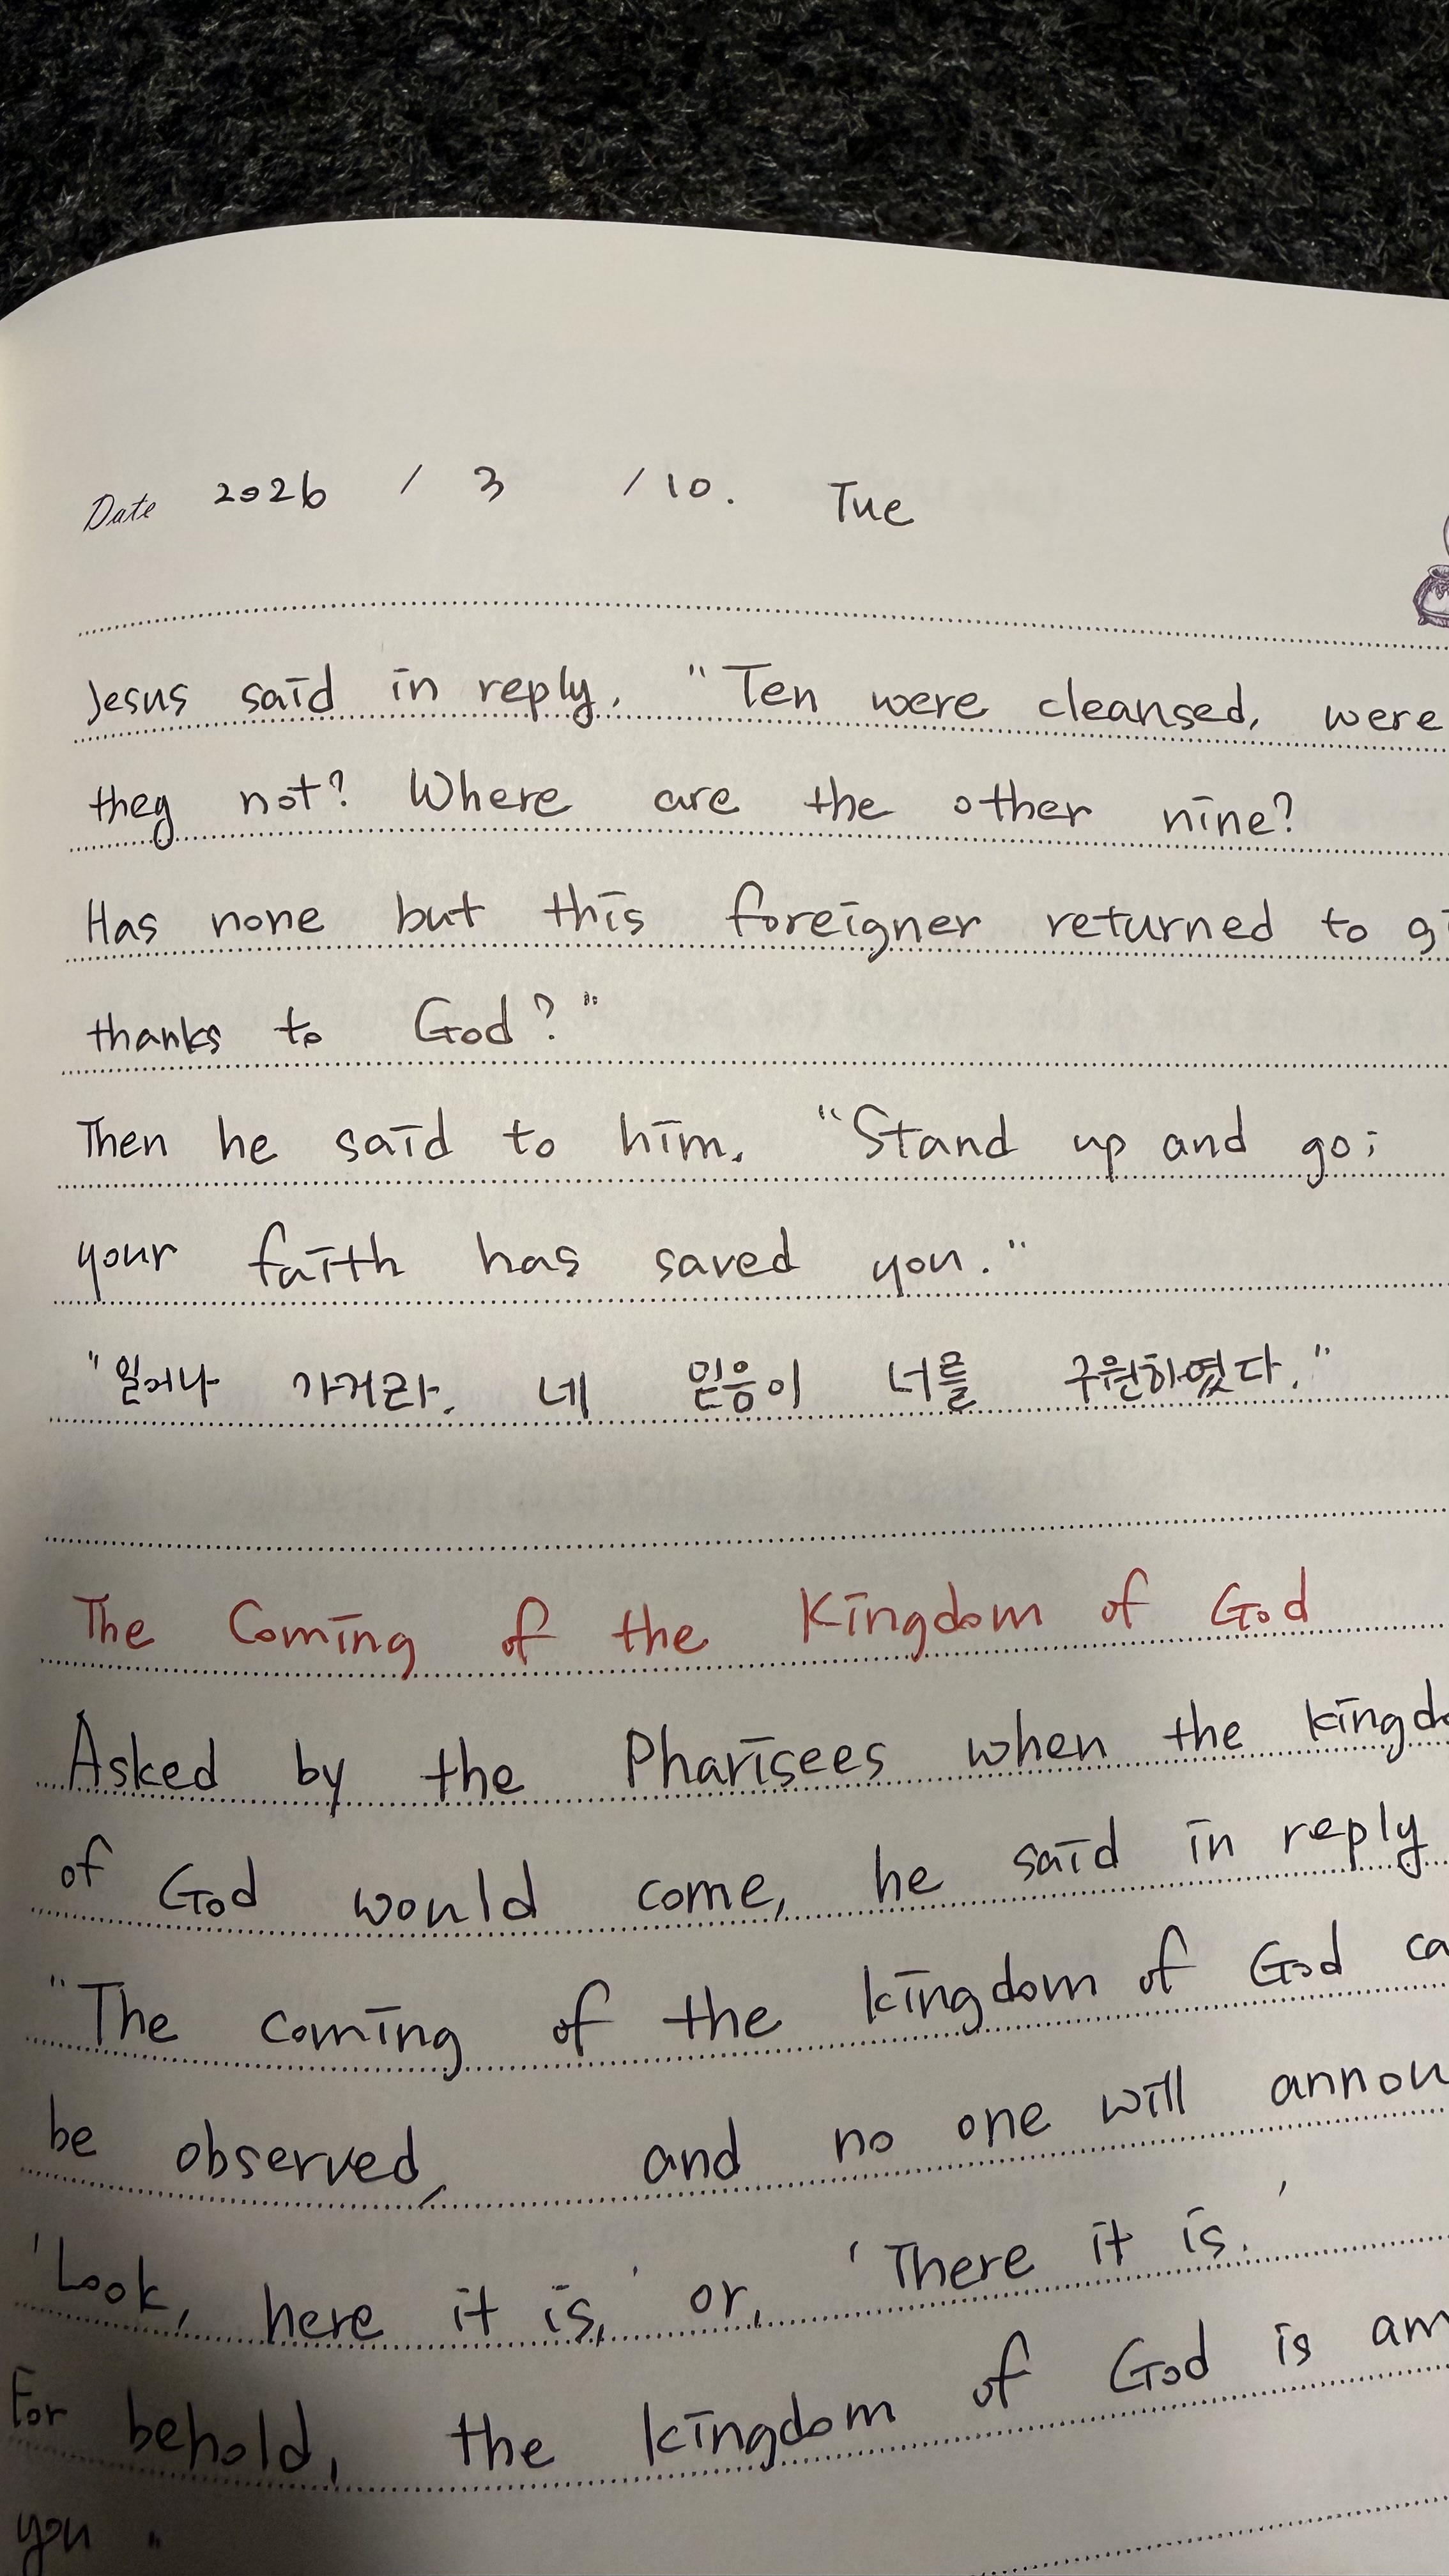 Date 2026 / 3 / 10. Tue
Jesus said in reply, "Ten were cleansed, were
they not? Where are the other nine?
Has none but this foreigner returned to gi
thanks to God?"
Then he said to him, "Stand up and go;
your faith has saved you."
"일어나 가거라. 네 믿음이 너를 구원하였다."
The Coming of the Kingdom of God
Asked by the Pharisees when the kingdo
of God would come, he said in reply
"The coming of the kingdom of God ca
be observed, and no one will annou
'Look, here it is,' or, 'There it is.'
For behold, the kingdom of God is am
you."